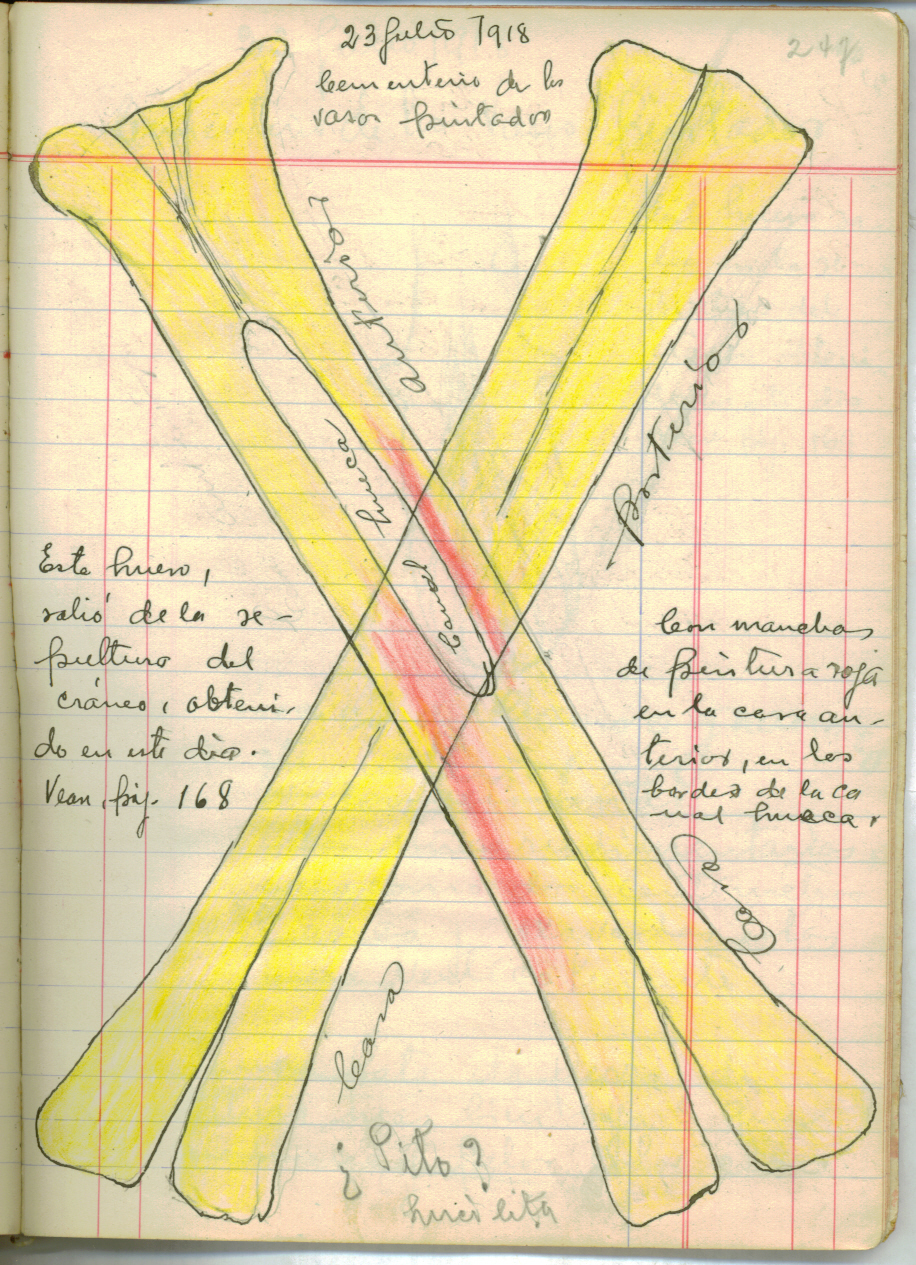 23 Julio 1918
Cementerio de los
vasos pintados
anterior
posterior
hueca
Canal
Este hueso,
salió de la se-
pultura del
cráneo, obteni-
do en este día.
Vean, pág. 168
Con manchas
de pintura roja
en la cara an-
terior, en los
bordes de la ca
nal hueca.
Cara
Cara
¿Pito?